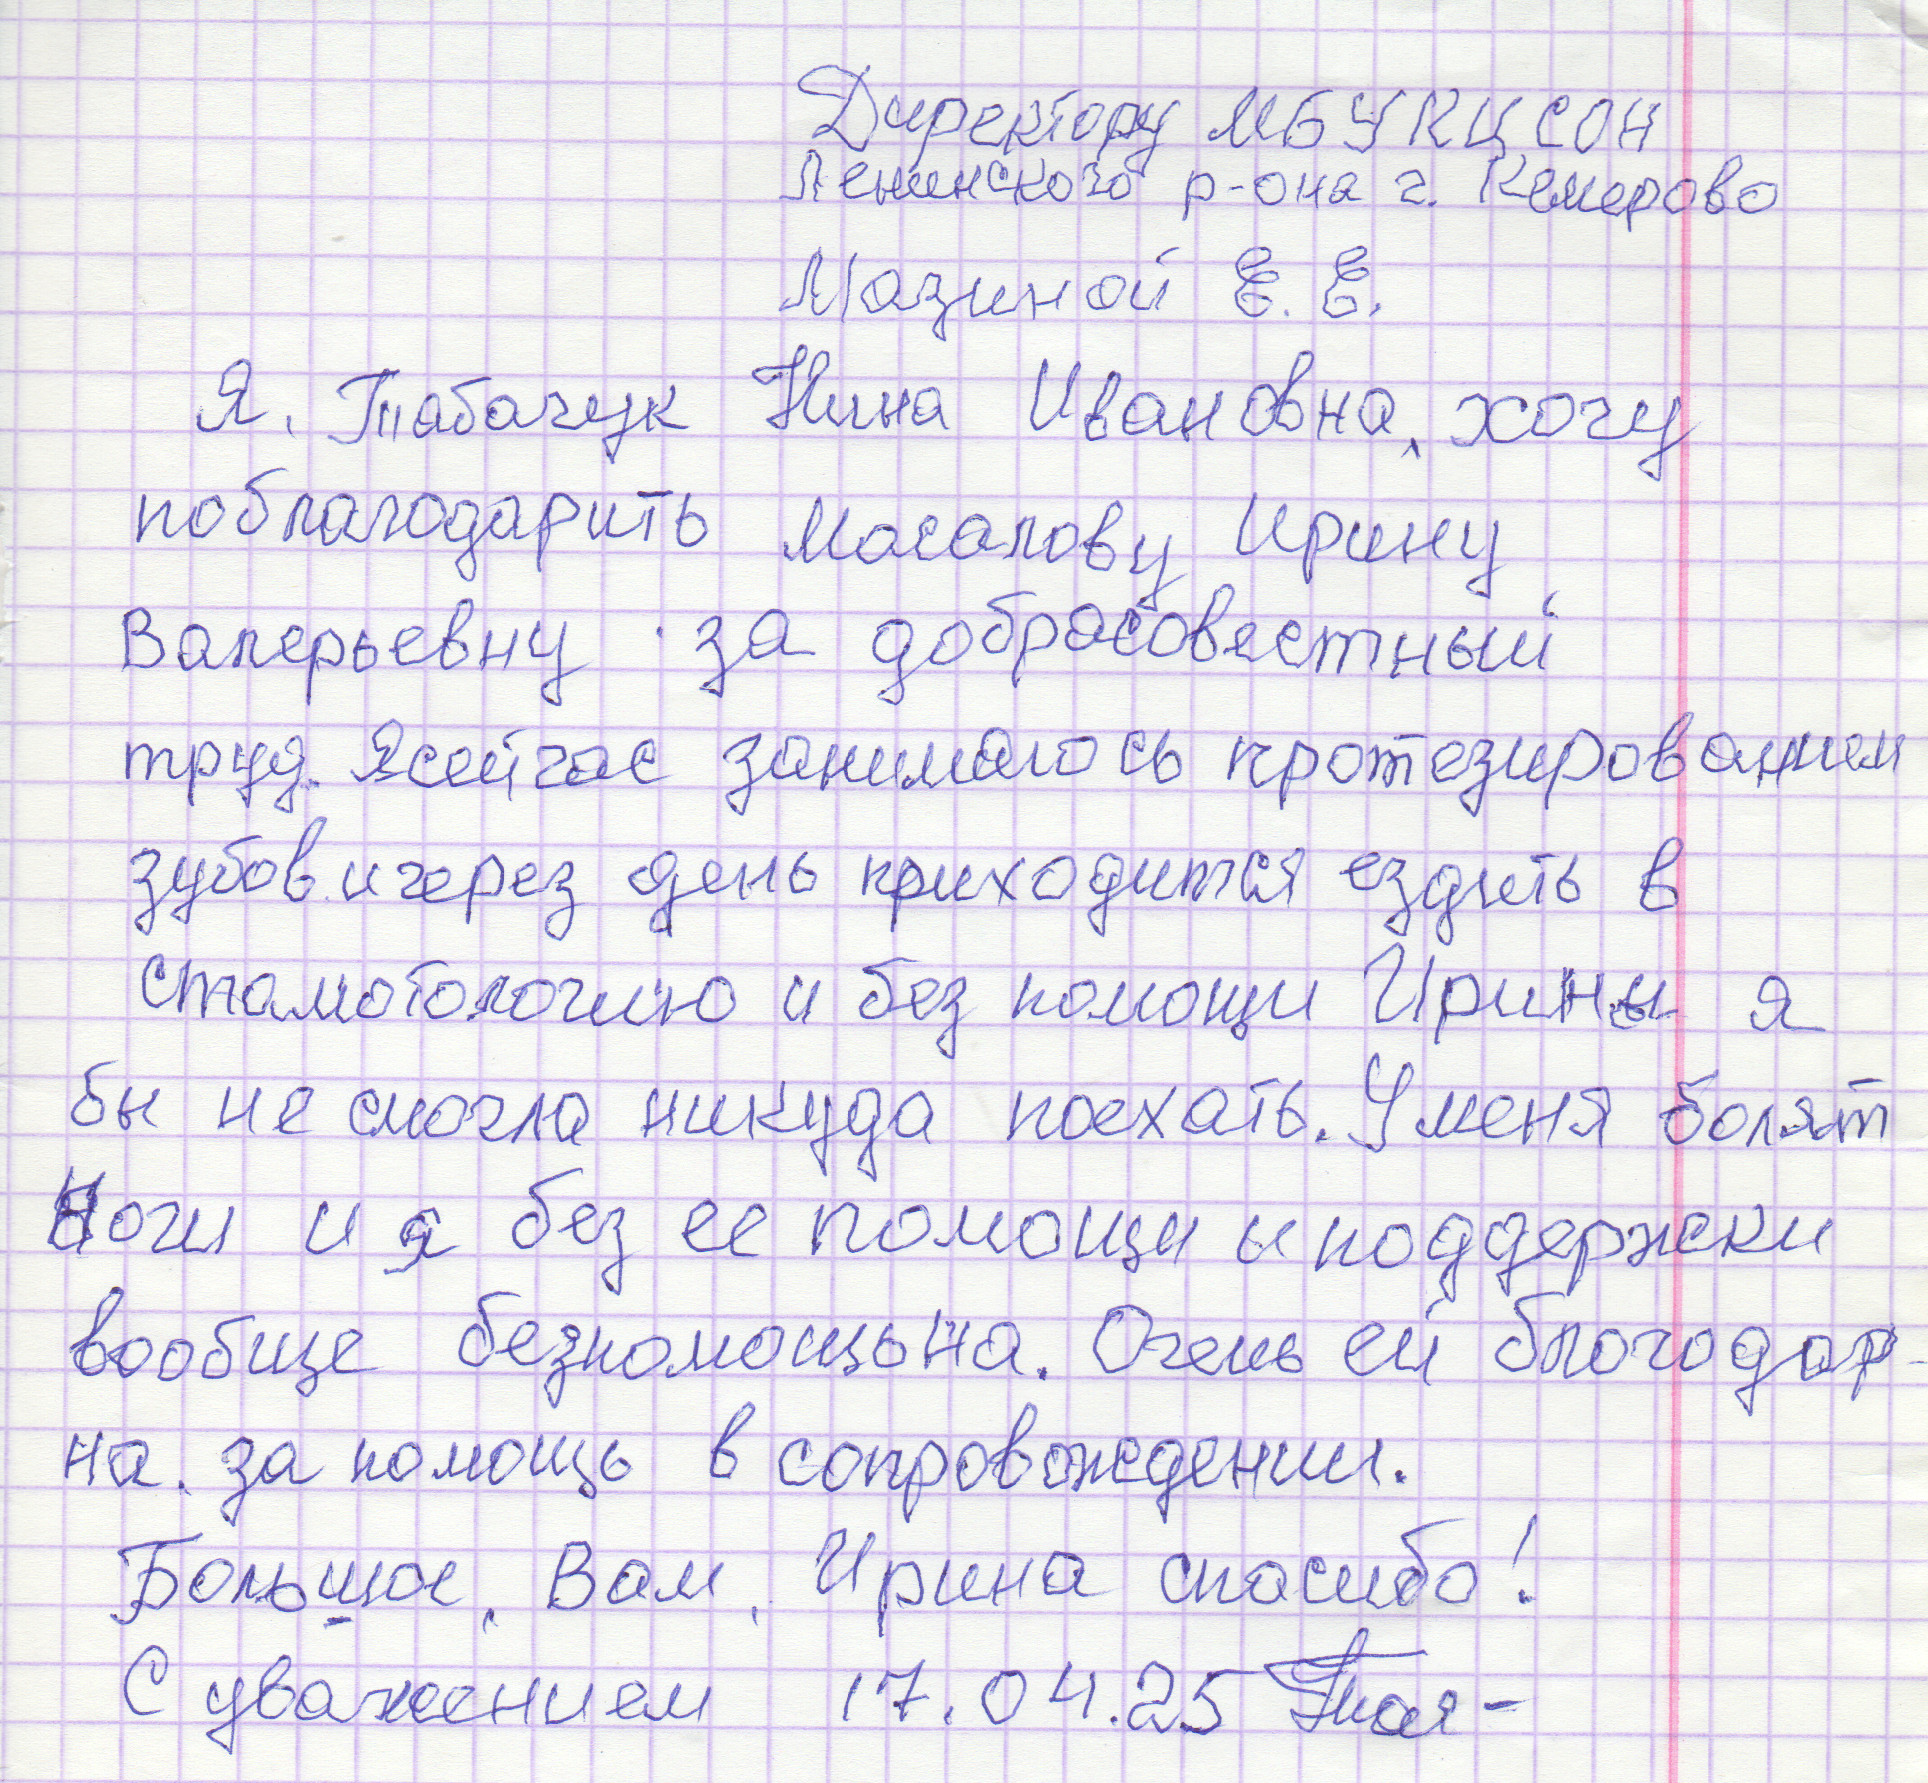 Директору МБУ КЦСОН
Ленинского р-она г. Кемерово
Мазиной Е. Е.
Я, Табачук Нина Ивановна, хочу
поблагодарить Масалову Ирину
Валерьевну за добрасовестный
труд. Я сейчас занимаюсь протезированием
зубов и через день приходится ездить в
стамотологию и без помощи Ирины я
бы не смогла никуда поехать. У меня болят
Ноги и я без ее помощи и поддержки
вообще безпомощьна. Очень ей благодар-
на. за помощь в сопровождении.
Большое, Вам, Ирина спасибо!
С уважением 17.04.25